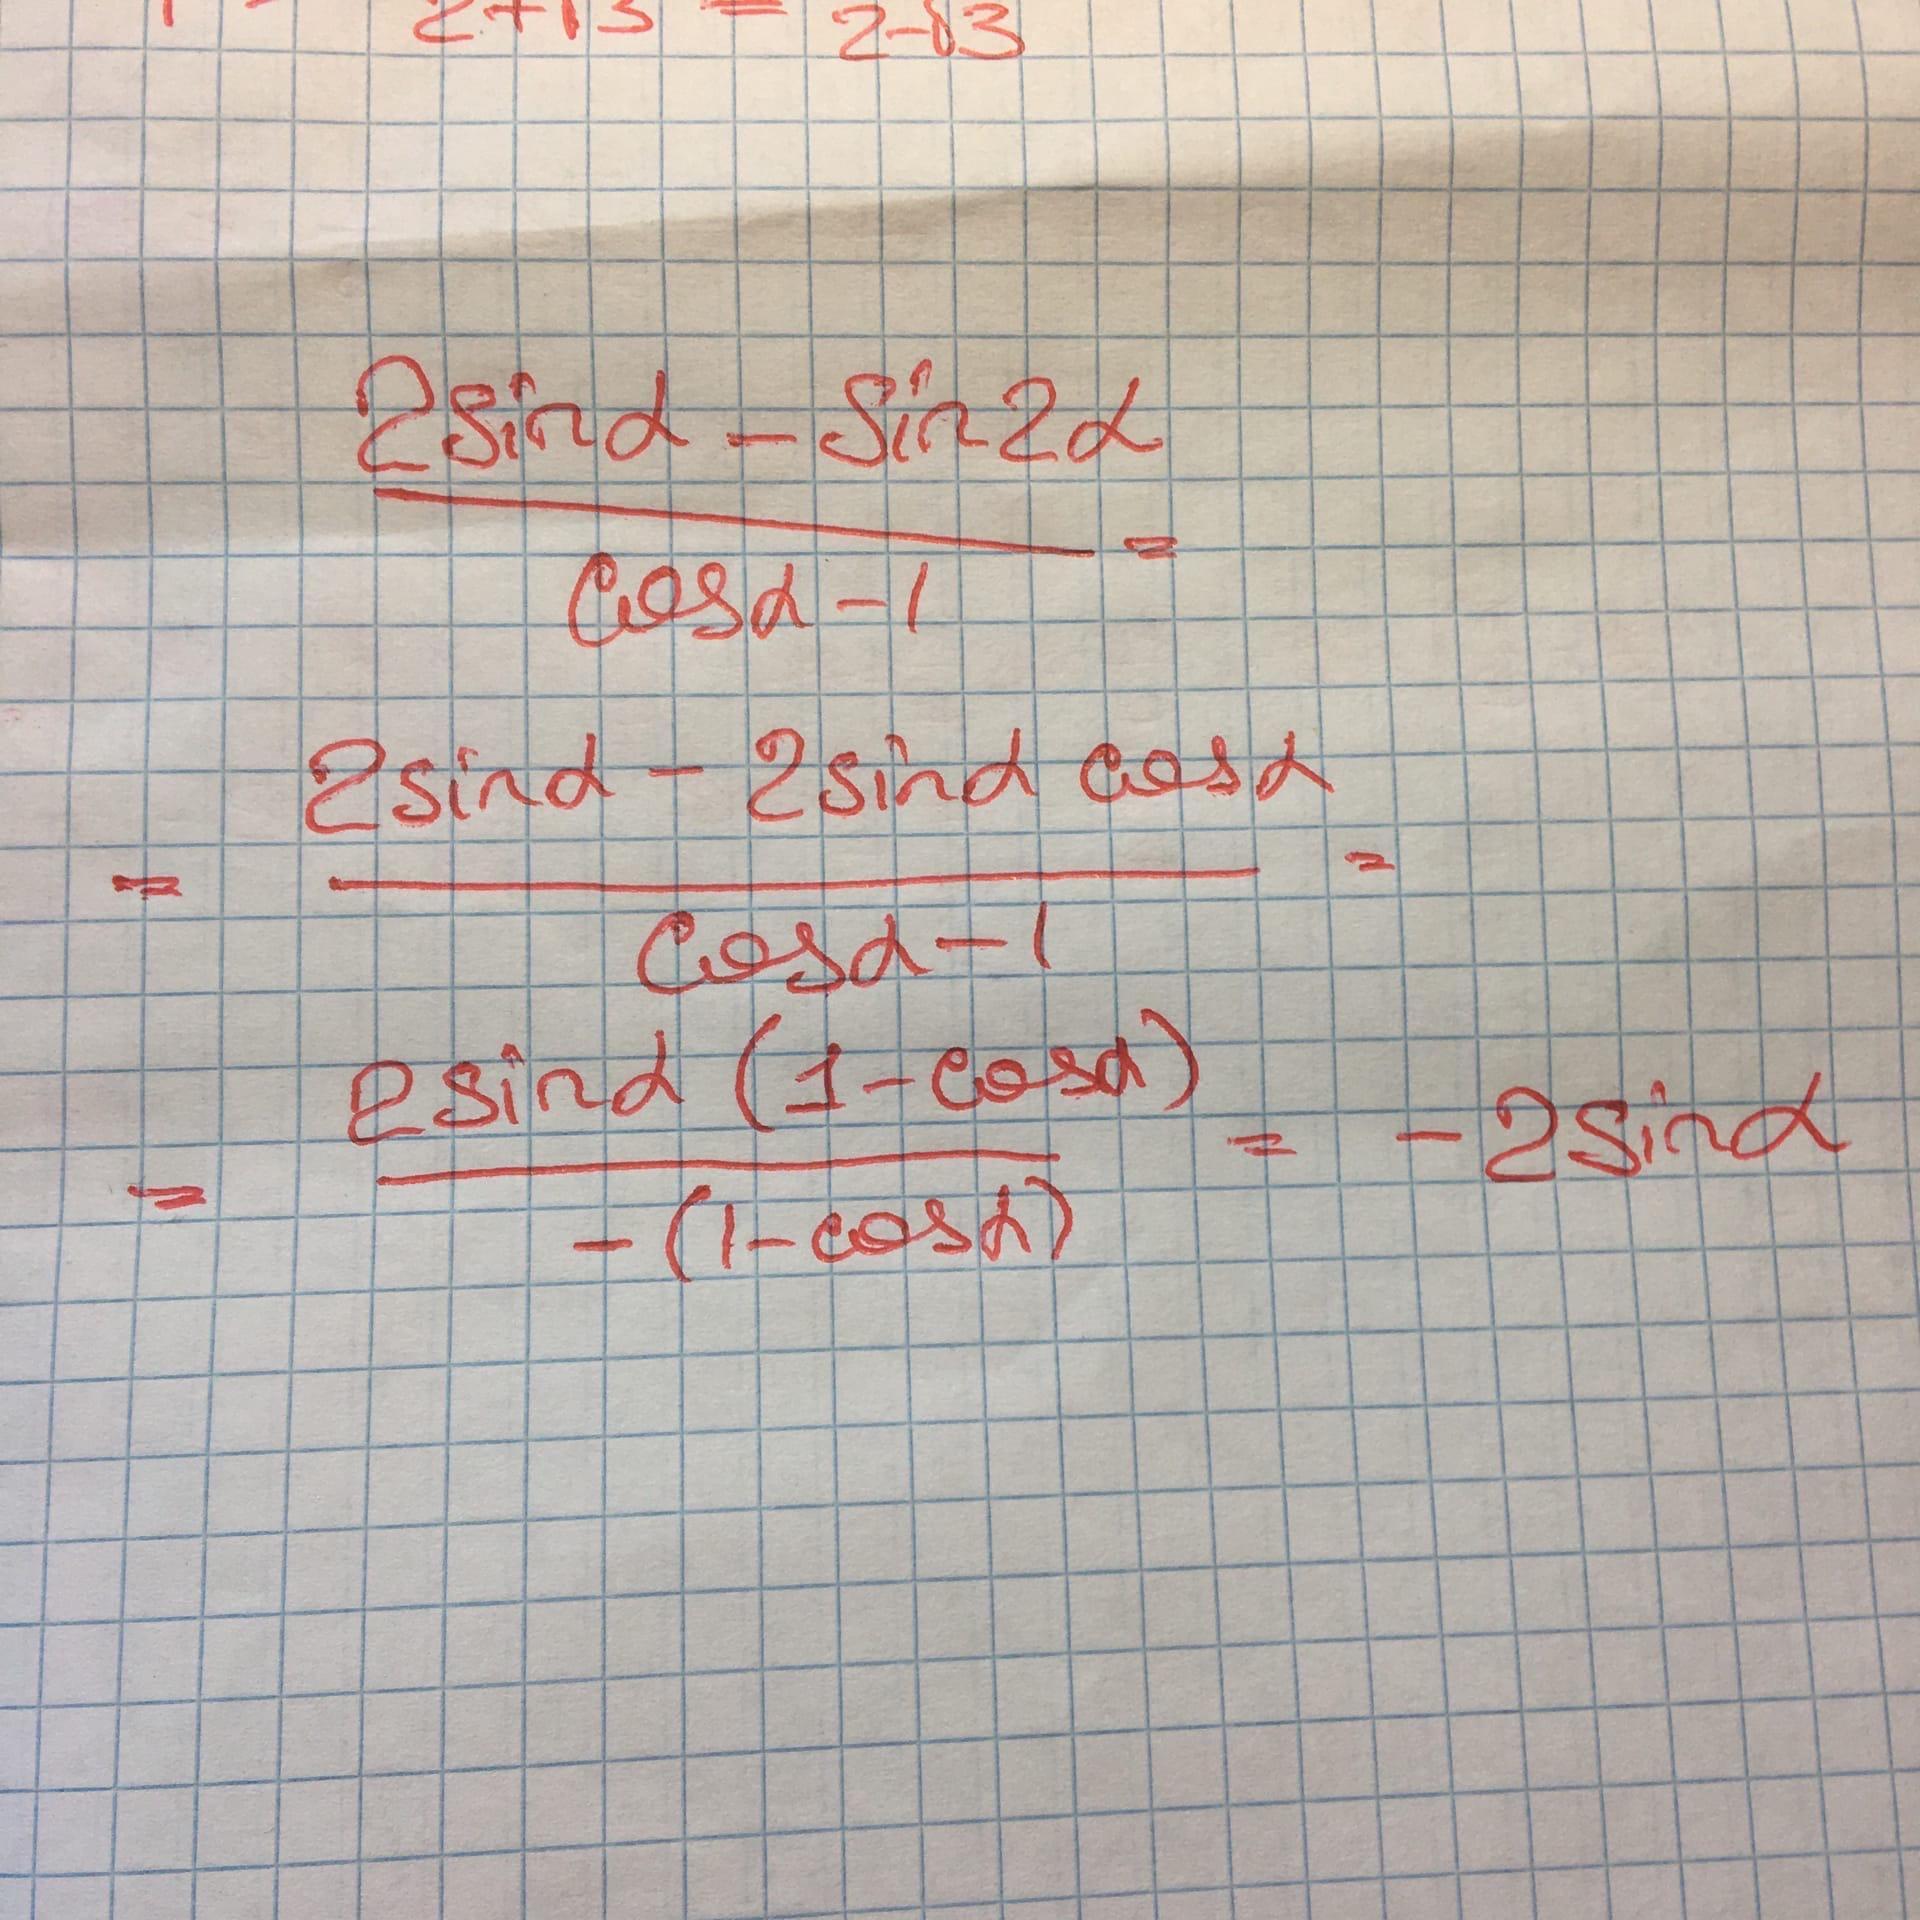 2+√3 = 2-√3
2sinα - sin2α
cosα - 1 =
= 2sinα - 2sinα cosα =
cosα - 1
= 2sinα (1 - cosα) = - 2sinα
- (1 - cosα)